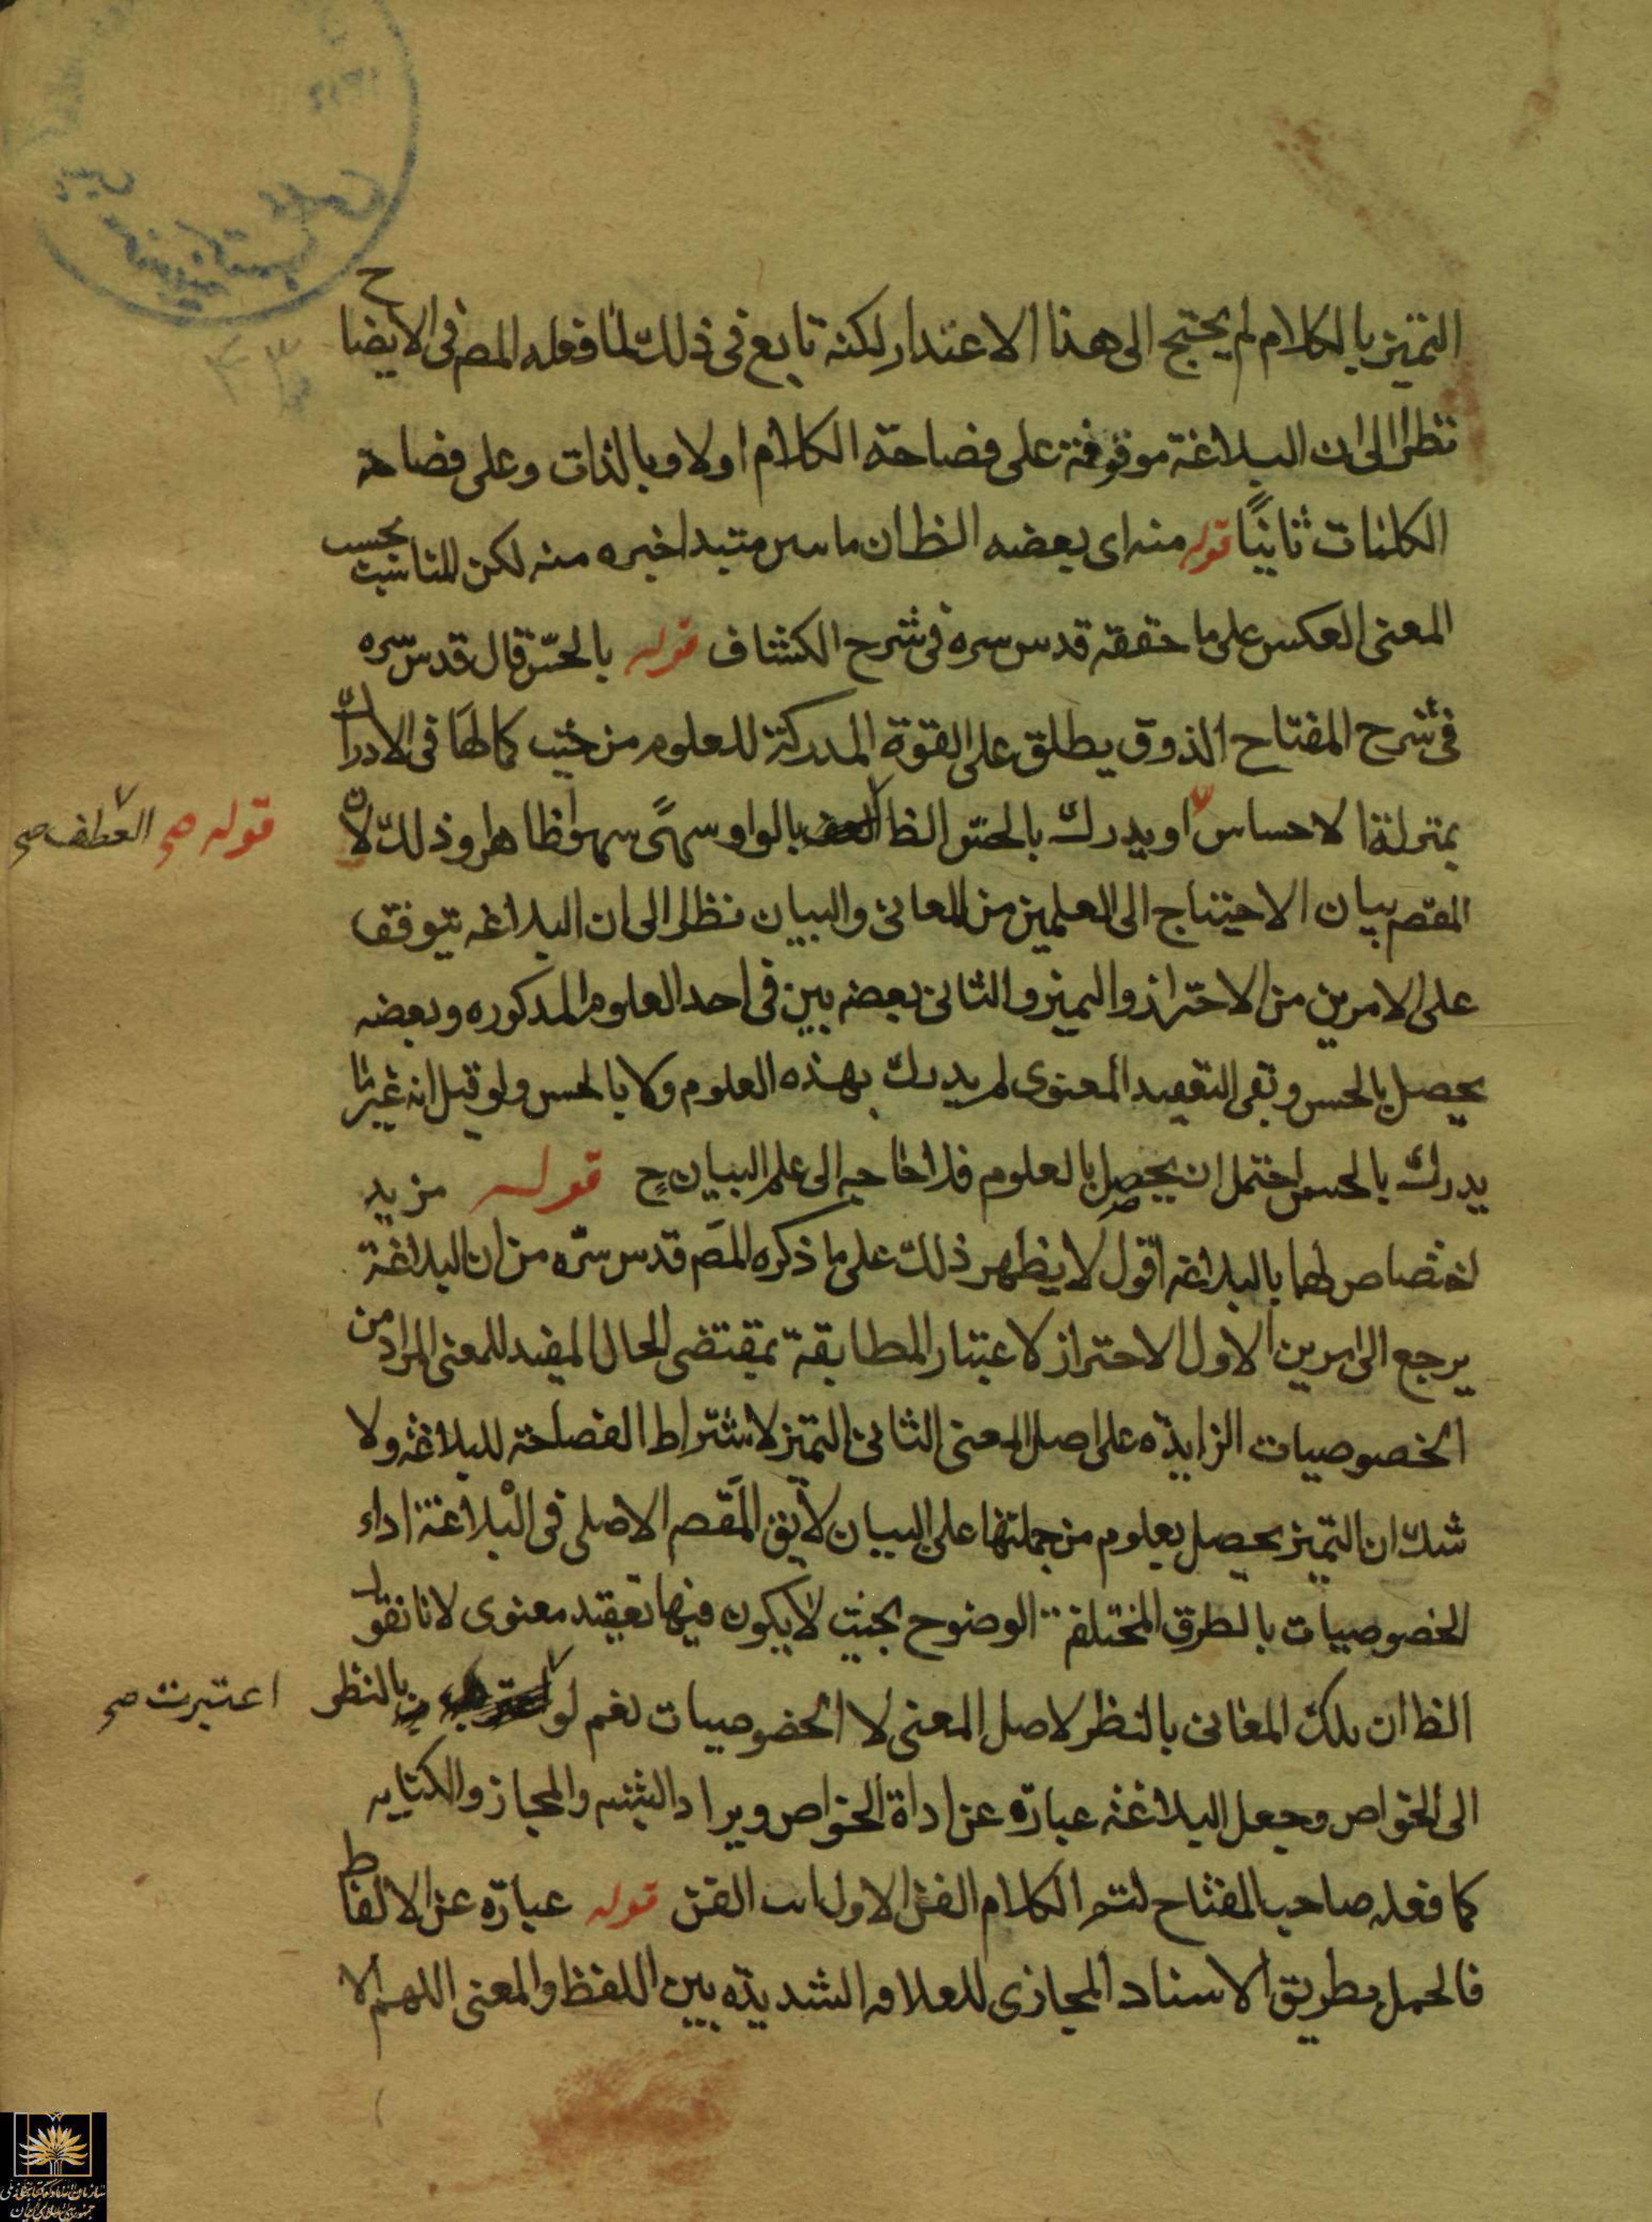 التميز بالكلام لم يحتج الى هذا الاعتذار لكنه تابع فى ذلك لما فعله المص فى الايضاح
نظرا الى ان البلاغة موقوفة على فصاحة الكلام اولا وبالذات وعلى فصاحة
الكلمات ثانيًا قوله منه اى بعضه الظ ان ما سن مبتدا خبره منه لكن المناسب بحسب
المعنى العكس على ما حققه قدس سره فى شرح الكشاف قوله بالحسّ قال قدس سره
فى شرح المفتاح الذوق يطلق على القوة المدركة للعلوم من حيث كمالها فى الادراك
بمنزلة الاحساس او يدرك بالحس الظ بالواو سهوا ظاهرا وذلك لان
قوله صح العطف صح
المقصم بيان الاحتياج الى العلمين من المعانى والبيان نظرا الى ان البلاغه يتوقف
على الامرين من الاحتراز والتميز والثانى بعضه يبين فى احد العلوم المذكوره وبعضه
يحصل بالحس وبقى التعقيد المعنوى لم يدرك بهذه العلوم ولا بالحس ولو قيل انه غير ما
يدرك بالحس احتمل ان يحصل بالعلوم فلا حاجه الى علم البيان ح قوله مزيد
اختصاص لهما بالبلاغه اقول لا يظهر ذلك على ما ذكره المص قدس سرّه من ان البلاغة
يرجع الى امرين الاول الاحتراز لاعتبار المطابقة بمقتضى الحال المفيد للمعنى المراد من
الخصوصيات الزايدة على اصل المعنى الثانى التميز لاشتراط الفصاحة للبلاغة ولا
شك ان التميز يحصل بعلوم من جملتها على البيان لا يق المقصم الاصلى فى البلاغة اداء
الخصوصيات بالطرق المختلفة الوضوح بحيث لا يكون فيها تعقيد معنوى لانا نقول
الظ ان تلك المعانى بالنظر لاصل المعنى لا الخصوصيات نعم لو بالنظر
اعتبرت صح
الى الخواص وجعل البلاغة عبارة عن اداة الخواص ويراد التشبيه والمجاز والكنايه
كما فعله صاحب المفتاح لتم الكلام الفن الاول الفن قوله عبارة عن الالفاظ
فالحمل بطريق الاسناد المجازى للعلاقه الشديدة بين اللفظ والمعنى اللهم الا